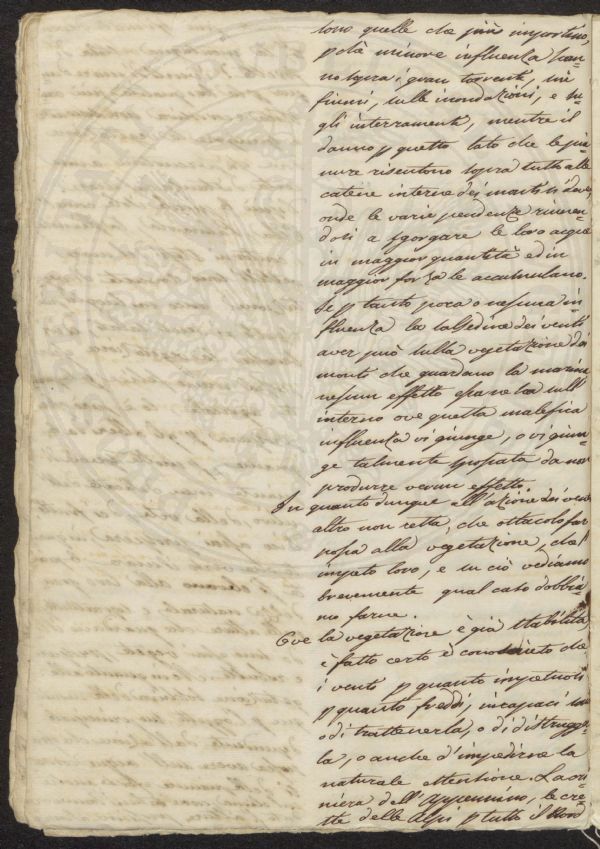 sono quelle che più importino,
p che minore influenza han=
no sopra i gran torrenti, sui
fiumi, sulle inondazioni, e su=
gli interramenti, mentre il
danno p questo lato che le pia=
nure risentono sopra tutto alle
catene interne dei monti si deve,
onde le varie pendenze riunen=
dosi a sgorgare le loro acque
in maggior quantità ed in
maggior forza le accumulano.
Se p tanto poca o nessuna in=
fluenza la salsedine dei venti
aver può sulla vegetazione dei
monti che guardano la marina
nessun effetto avrà sull'
interno ove questa malefica
influenza vi giunge, o vi giun=
ge talmente spossata da non
produrre verun effetto.
In quanto dunque all'azione dei venti
altro non resta, che ostacolo far
possa alla vegetazione, che l'
impeto loro, e in ciò vediamo
brevemente qual caso dobbia=
mo farne.
Ove la vegetazione è già stabilita,
è fatto certo e conosciuto che
i venti p quanto impetuosi
p quanto freddi, incapaci sono
o di trattenerla, o di distrugger=
la, o anche d'impedirne la
naturale estensione. La
dell'Appennino, le cre=
ste delle Alpi p tutto il Nord